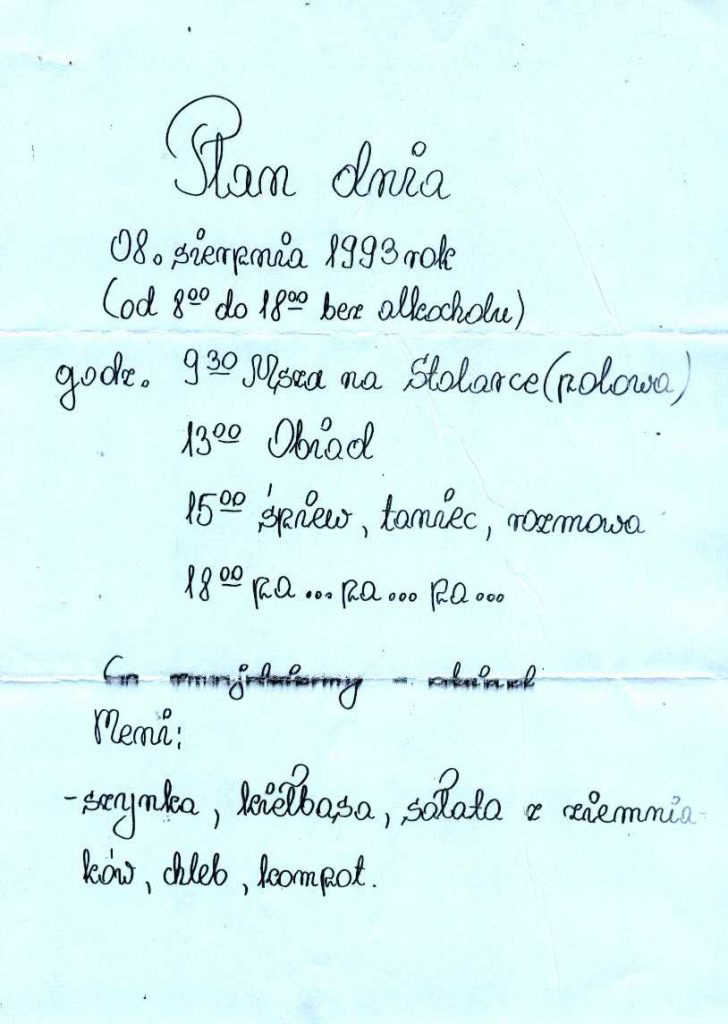 Plan dnia
08. sierpnia 1993 rok
(od 8⁰⁰ do 18⁰⁰ bez alkocholu)
godz. 9³⁰ Msza na Stolarce (polowa)
13⁰⁰ Obiad
15⁰⁰ śpiew, taniec, rozmowa
18⁰⁰ pa... pa... pa...
Meni:
- szynka, kiełbasa, sałata z ziemnia-
ków, chleb, kompot.